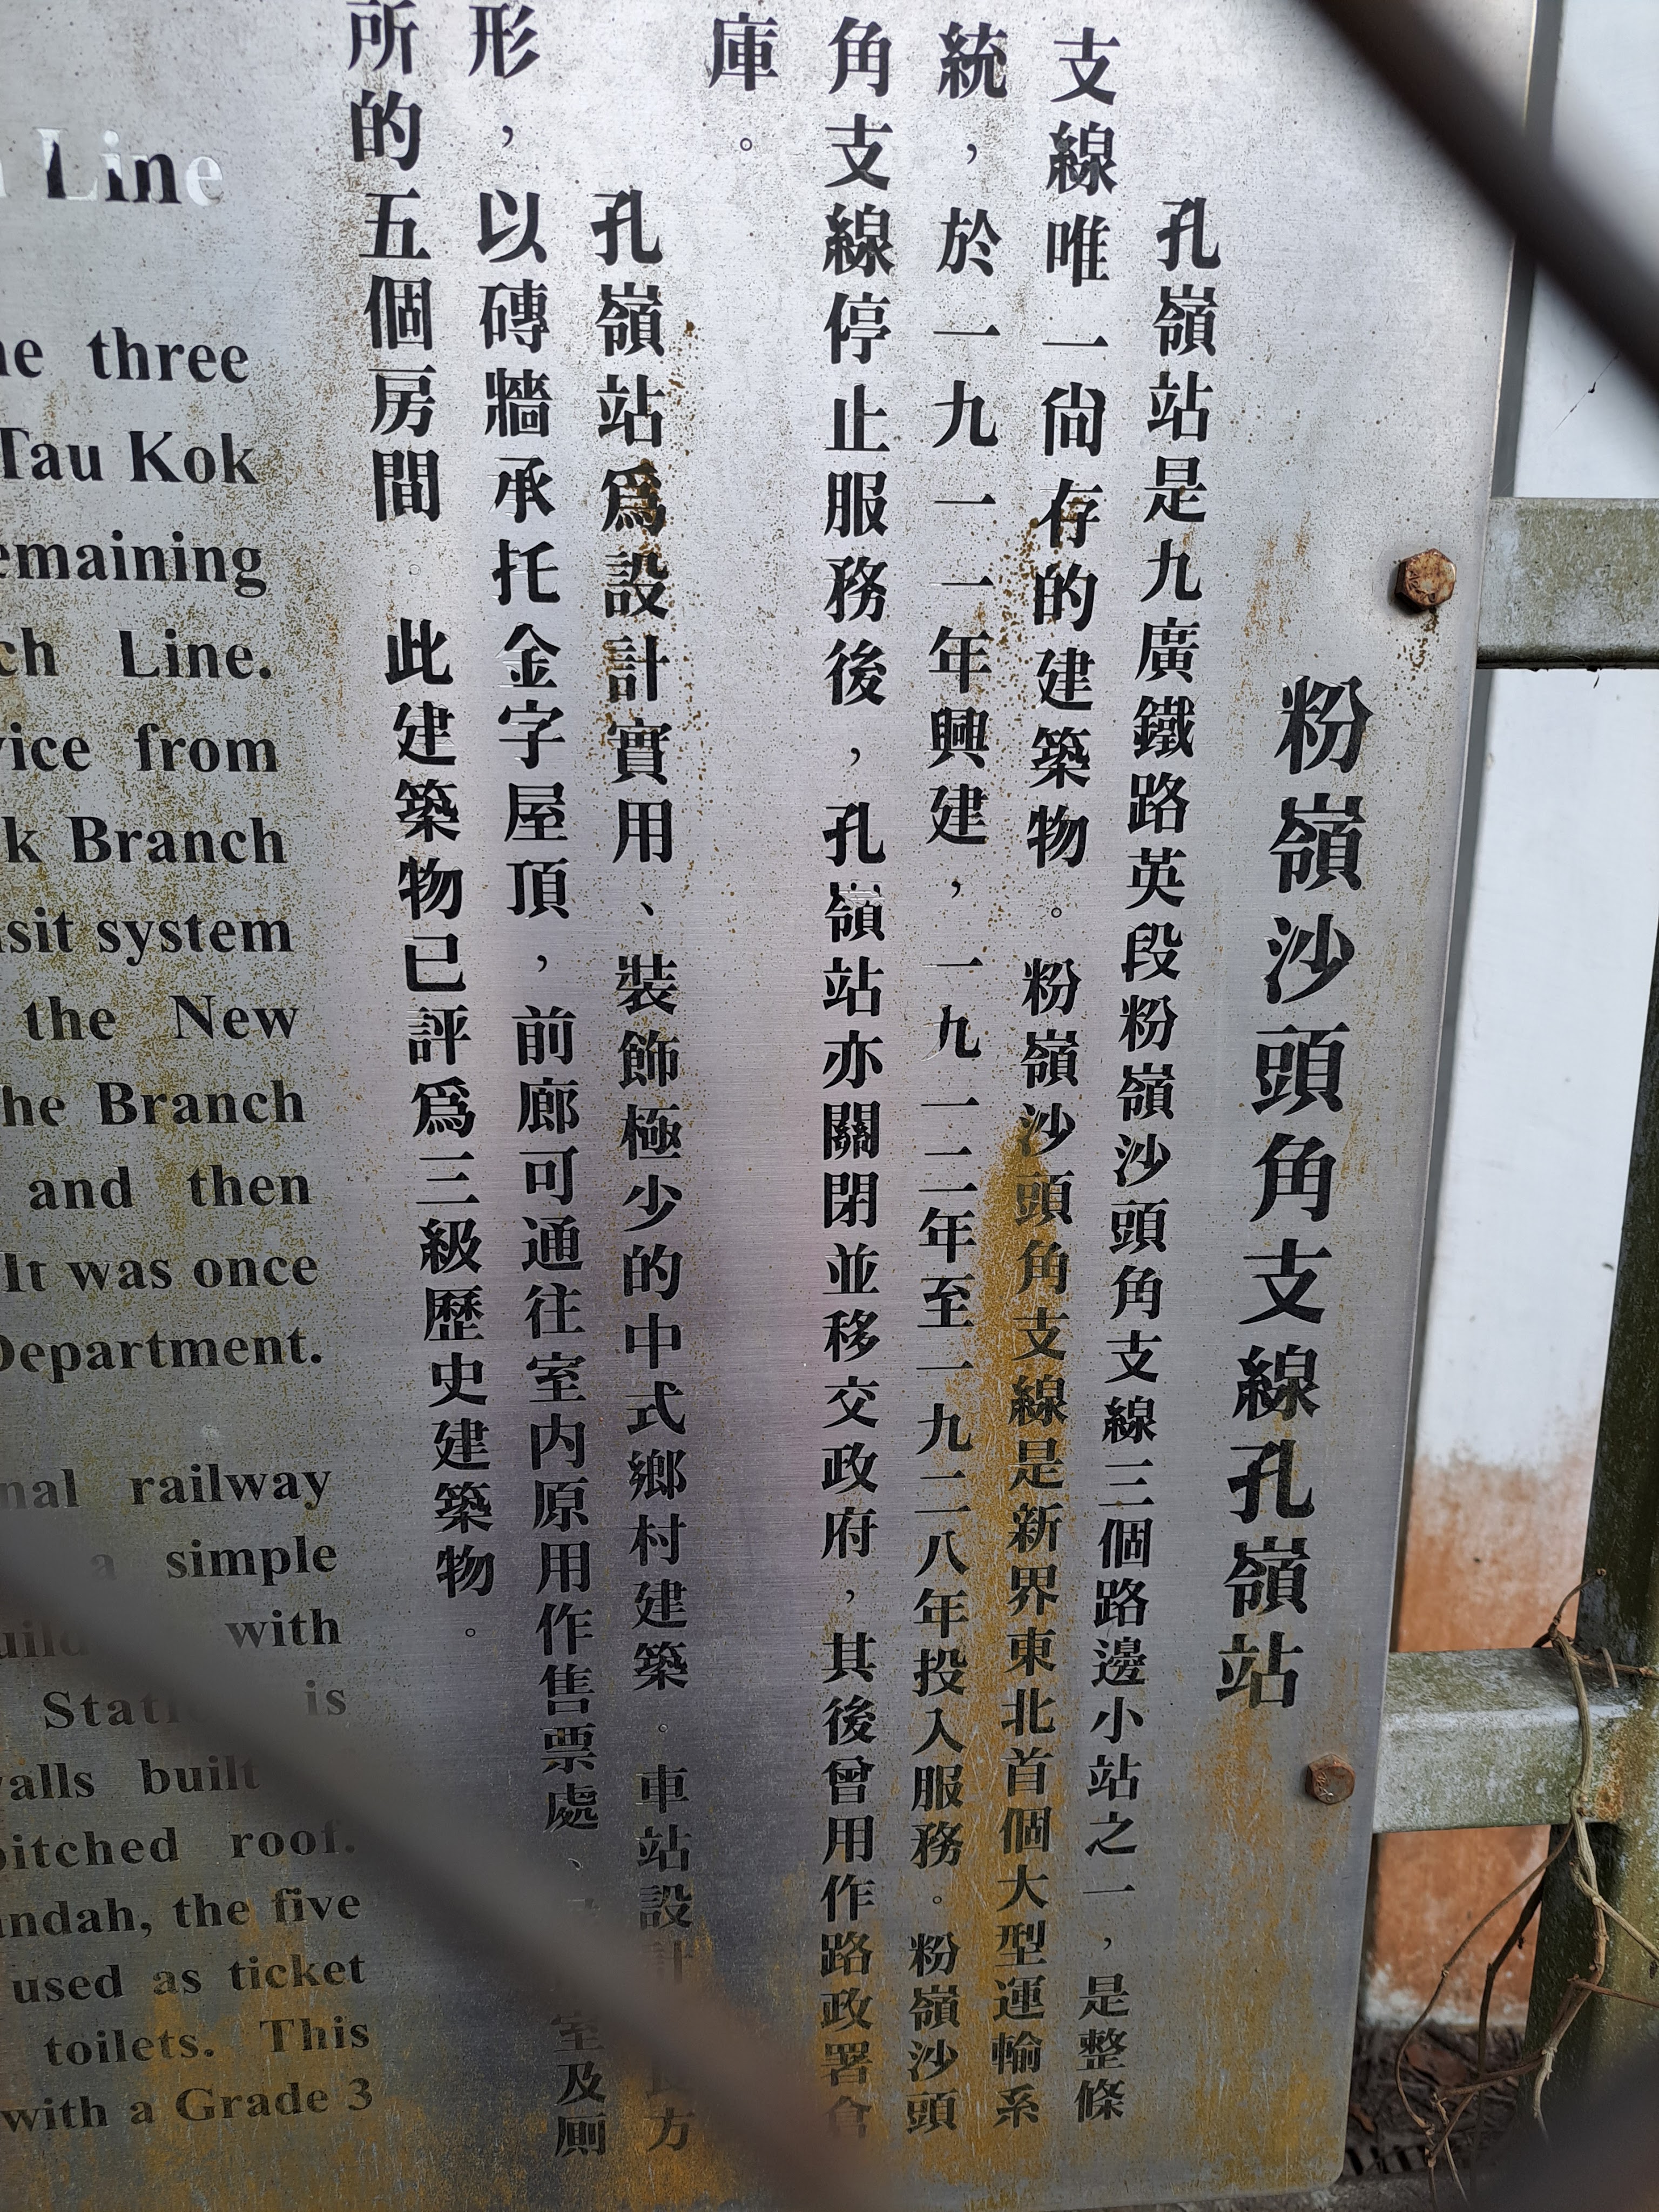 粉嶺沙頭角支線孔嶺站
孔嶺站是九廣鐵路英段粉嶺沙頭角支線三個路邊小站之一，是整條
支線唯一尚存的建築物。粉嶺沙頭角支線是新界東北首個大型運輸系
統，於一九一一年興建，一九一二年至一九二八年投入服務。粉嶺沙頭
角支線停止服務後，孔嶺站亦關閉並移交政府，其後曾用作路政署倉
庫。
孔嶺站為設計實用、裝飾極少的中式鄉村建築。車站設計方
形，以磚牆承托金字屋頂，前廊可通往室內原用作售票處、室及廁
所的五個房間。此建築物已評為三級歷史建築物。
Line
three
Tau Kok
Line.
from
Branch
system
the New
Branch
and then
It was once
Department.
railway
a simple
with
is
built
pitched roof.
the five
used as ticket
toilets. This
with a Grade 3